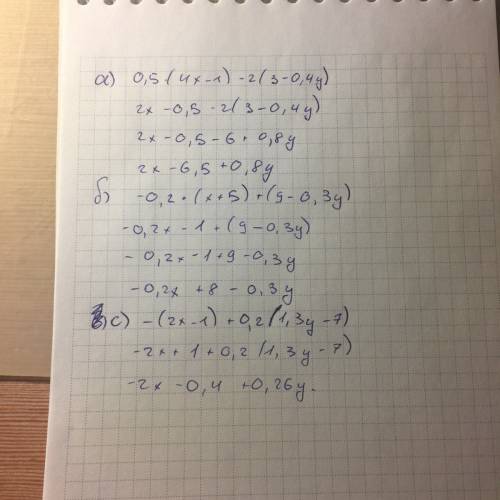 а) 0,5(4x-1)-2(3-0,4y)
2x-0,5-2(3-0,4y)
2x-0,5-6+0,8y
2x-6,5+0,8y
б) -0,2*(x+5)+(9-0,3y)
-0,2x-1+(9-0,3y)
-0,2x-1+9-0,3y
-0,2x+8-0,3y
с) -(2x-1)+0,2(1,3y-7)
-2x+1+0,2(1,3y-7)
-2x-0,4+0,26y.